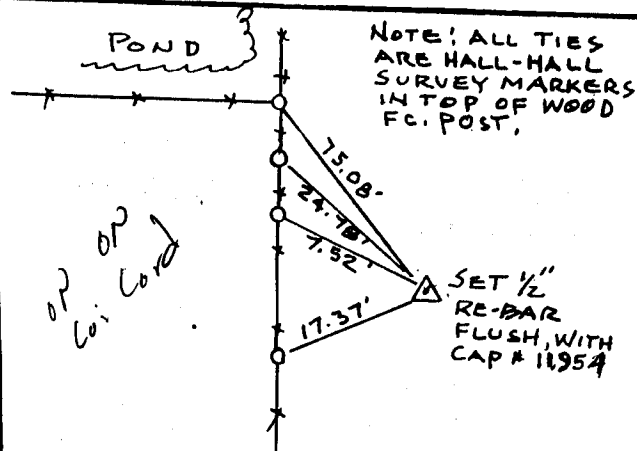 POND
NOTE: ALL TIES
ARE HALL-HALL
SURVEY MARKERS
IN TOP OF WOOD
FC. POST.
75.08'
24.78'
7.52'
17.37'
SET 1/2"
RE-BAR
FLUSH, WITH
CAP # 11954
OP OP
Co. Cord